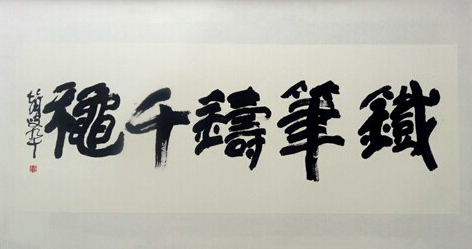 鐵筆鑄千龝